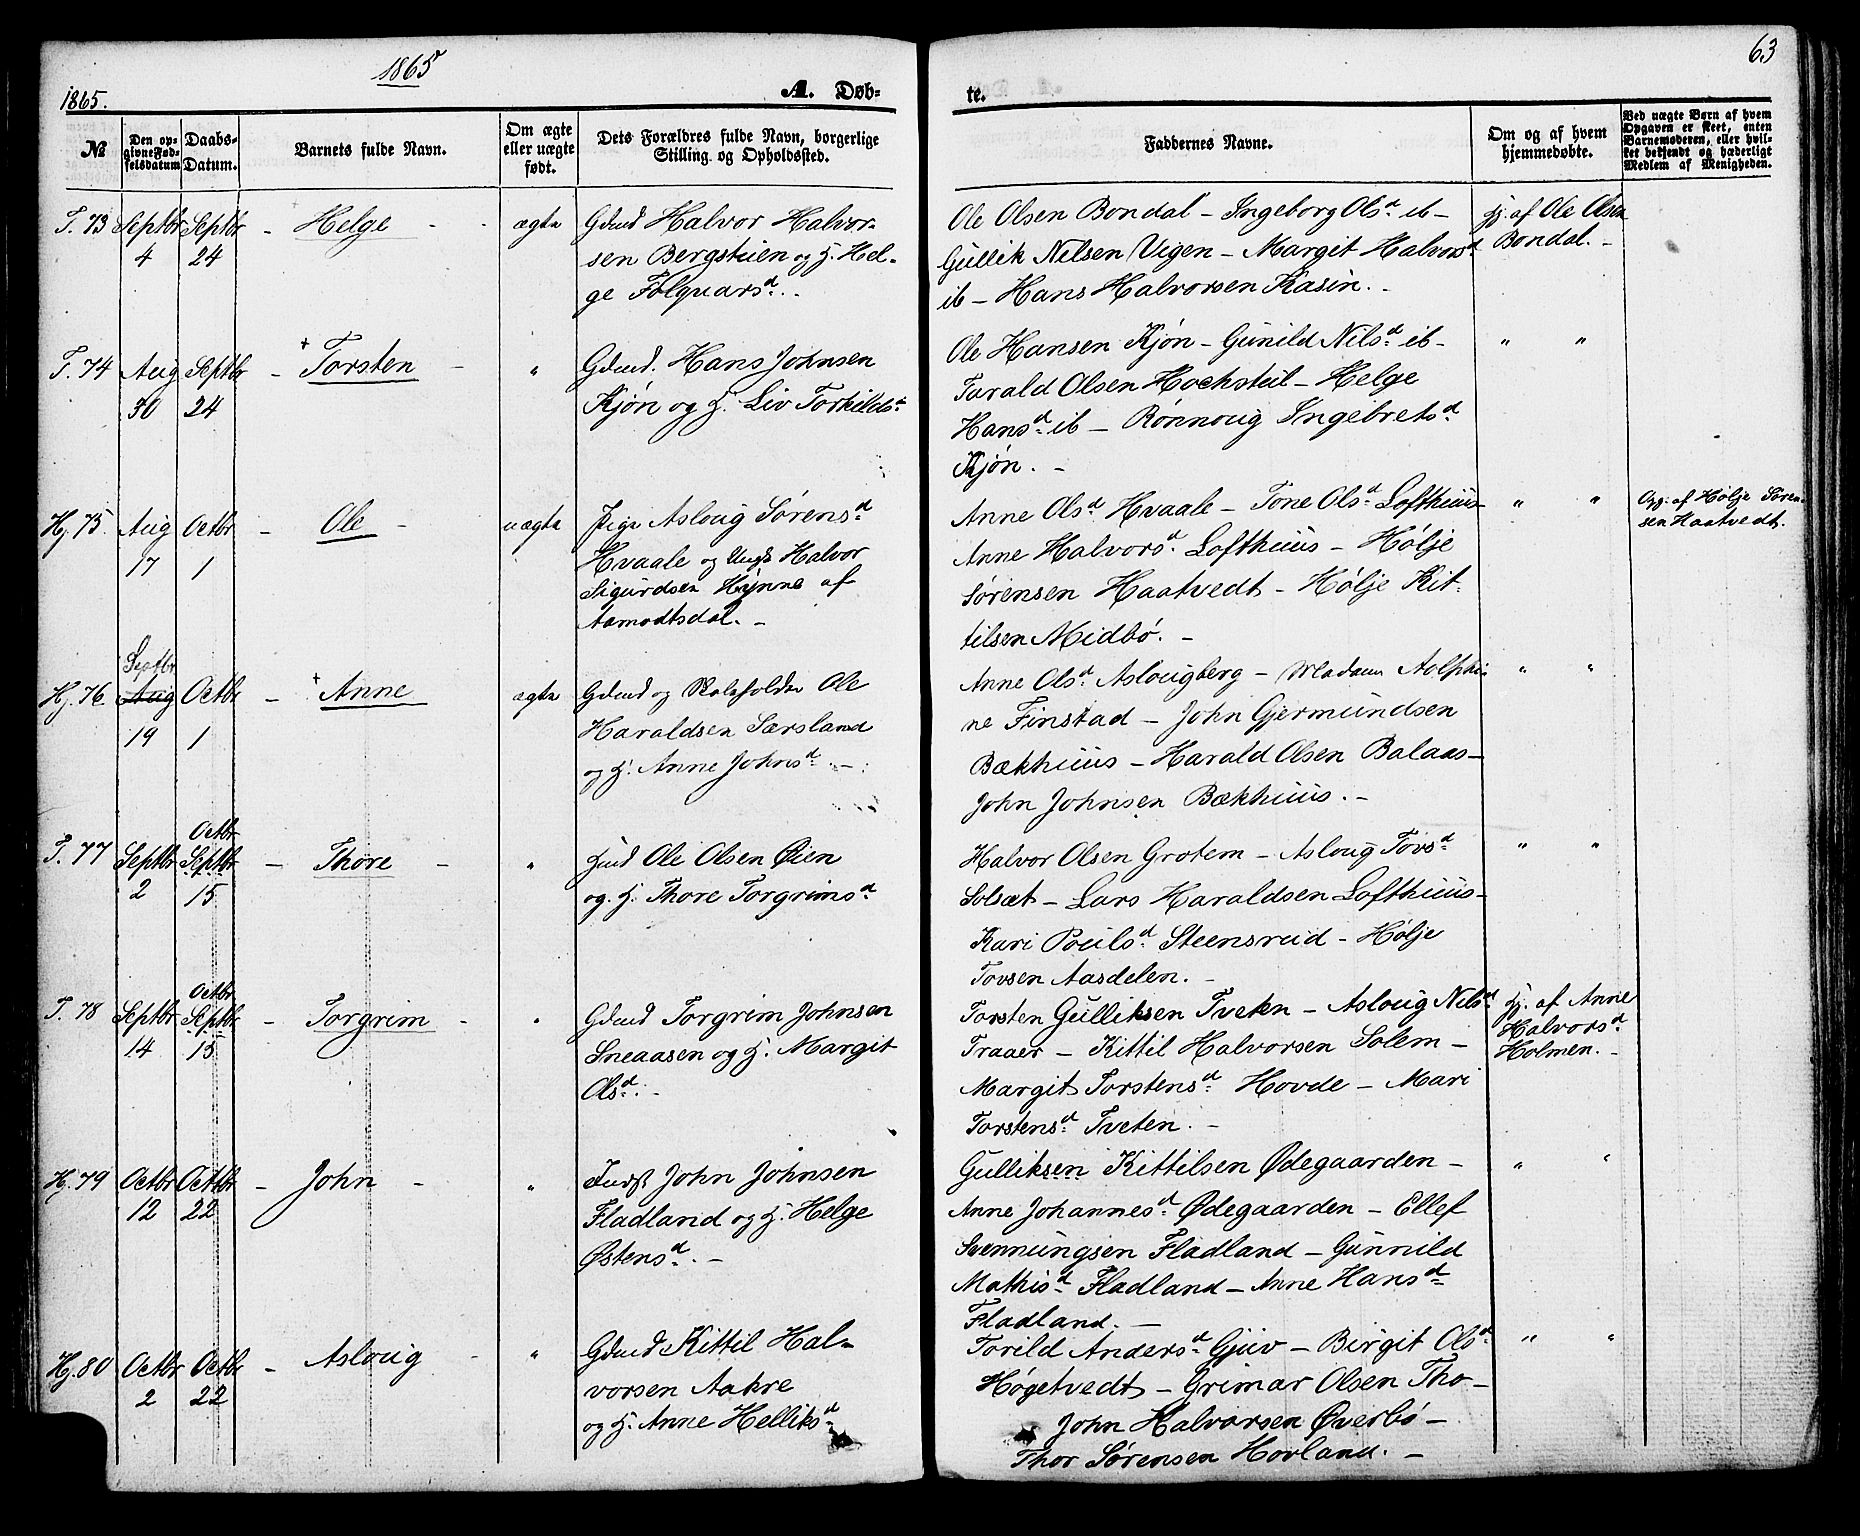 1865
63
1865.
A. Døb-
te.
№
Den op-
givne Fød-
selsdatum
Daabs-
Datum.
Barnets fulde Navn.
Om ægte
eller uægte
født.
Dets Forældres fulde Navn, borgerlige
Stilling og Opholdssted.
Faddernes Navne.
Om og af hvem
hjemmedøbte.
Ved uægte Børn af hvem
Opgaven er skeet, enten
Barnemoderen, eller hvil-
ket bekjendt og hæderligt
Medlem af Menigheden.
T. 73 Septbr Septbr - Helge - - ægte
4 24
Gdmd Halvor Halvor-
sen Bergstuien og H. Hel-
ge Folquarsd. -
Ole Olsen Bondal - Ingeborg Olsd ib -
Gullik Nilsen Vigen - Margit Halvorsd
ib - Hans Halvorsen Kasin. -
Hj. af Ole Olsen
Bondal. -
T. 74 Aug Septbr - + Torsten - "
30 24
Gdmd. Hans Johnsen
Kjøn og H. Liv Torkildsd
Ole Hansen Kjøn - Gunild Nilsd ib -
Tarald Olsen Hochstuil - Helge
Hansd ib - Rønnoug Ingebretsd
Kjøn. -
" "
Hj. 75. Aug Octbr - Ole - uægte
17 1
Pige Asloug Sørensd
Hvaale og Ungk Halvor
Sigurdsen Hynne af
Aamodtsdal. -
Anne Olsd Hvaale - Tone Olsd Lofthuus -
Anne Halvorsd Lofthuus - Hølje
Sørensen Haatvedt - Hølje Kit-
tilsen Midbø. -
" "
Opg. af Hølje Søren-
sen Haatvedt.
Septbr
Hj. 76 Aug Octbr - + Anne ægte
19 1
Gdmd og Skoleholder Ole
Haraldsen Særsland
og H. Anne Johnsd. -
Anne Olsd Aslougberg - Madam Aolphi-
ne Finstad - John Gjermundsen
Bækhuus - Harald Olsen Balaas -
John Johnsen Bækhuus. -
" "
Octbr
T. 77 Septbr Septbr - Thore - "
2 15
Hmd Ole Olsen Øien
og. H. Thore Torgrimsd
Halvor Olsen Grotem - Asloug Tovsd
Solsæt - Lars Haraldsen Lofthuus -
Kari Poulsd Steensruid - Hølje
Tovsen Aasdelen. -
" "
Octbr
T. 78 Septbr Septbr - Torgrim - "
14 15
Gdmd Torgrim Johnsen
Sneaasen og H. Margit
Olsd. -
Torsten Gulliksen Tveten - Asloug Nilsd
Traaer - Kittil Halvorsen Solem -
Margit Torstensd Hovde - Mari
Torstensd Tveten. -
Hj. af Anne
Halvorsd
Holmen. -
H. 79 Octbr Octbr - John - "
12 22
Inds John Johnsen
Fladland og H. Helge
Østensd. -
Gulliksen Kittilsen Ødegaarden -
Anne Johannesd Ødegaarden - Ellef
Svennungsen Fladland - Gunnild
Mathisd Fladland - Anne Hansd
Fladland. -
" "
Hj. 80 Octbr Octbr - Asloug - "
2 22
Gdmd Kittil Hal-
vorsen Aakre
og H. Anne Helliksd
Torild Andersd Gjuv - Birgit Olsd
Høgetvedt - Grimar Olsen Tho -
John Halvorsen Øverbø -
Thor Sørensen Hovland. -
" "